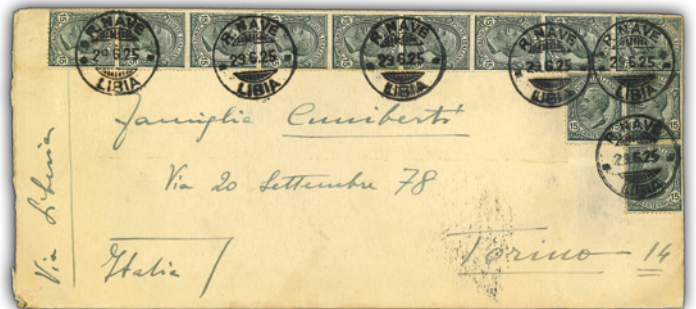 R. NAVE
29.6.25
LIBIA
R. NAVE
29.6.25
LIBIA
R. NAVE
29.6.25
LIBIA
R. NAVE
29.6.25
LIBIA
R. NAVE
29.6.25
LIBIA
R. NAVE
29.6.25
LIBIA
15
15
15
Famiglia Cuniberti
Via 20 Settembre 78
Torino 14
Italia
Via Siberia